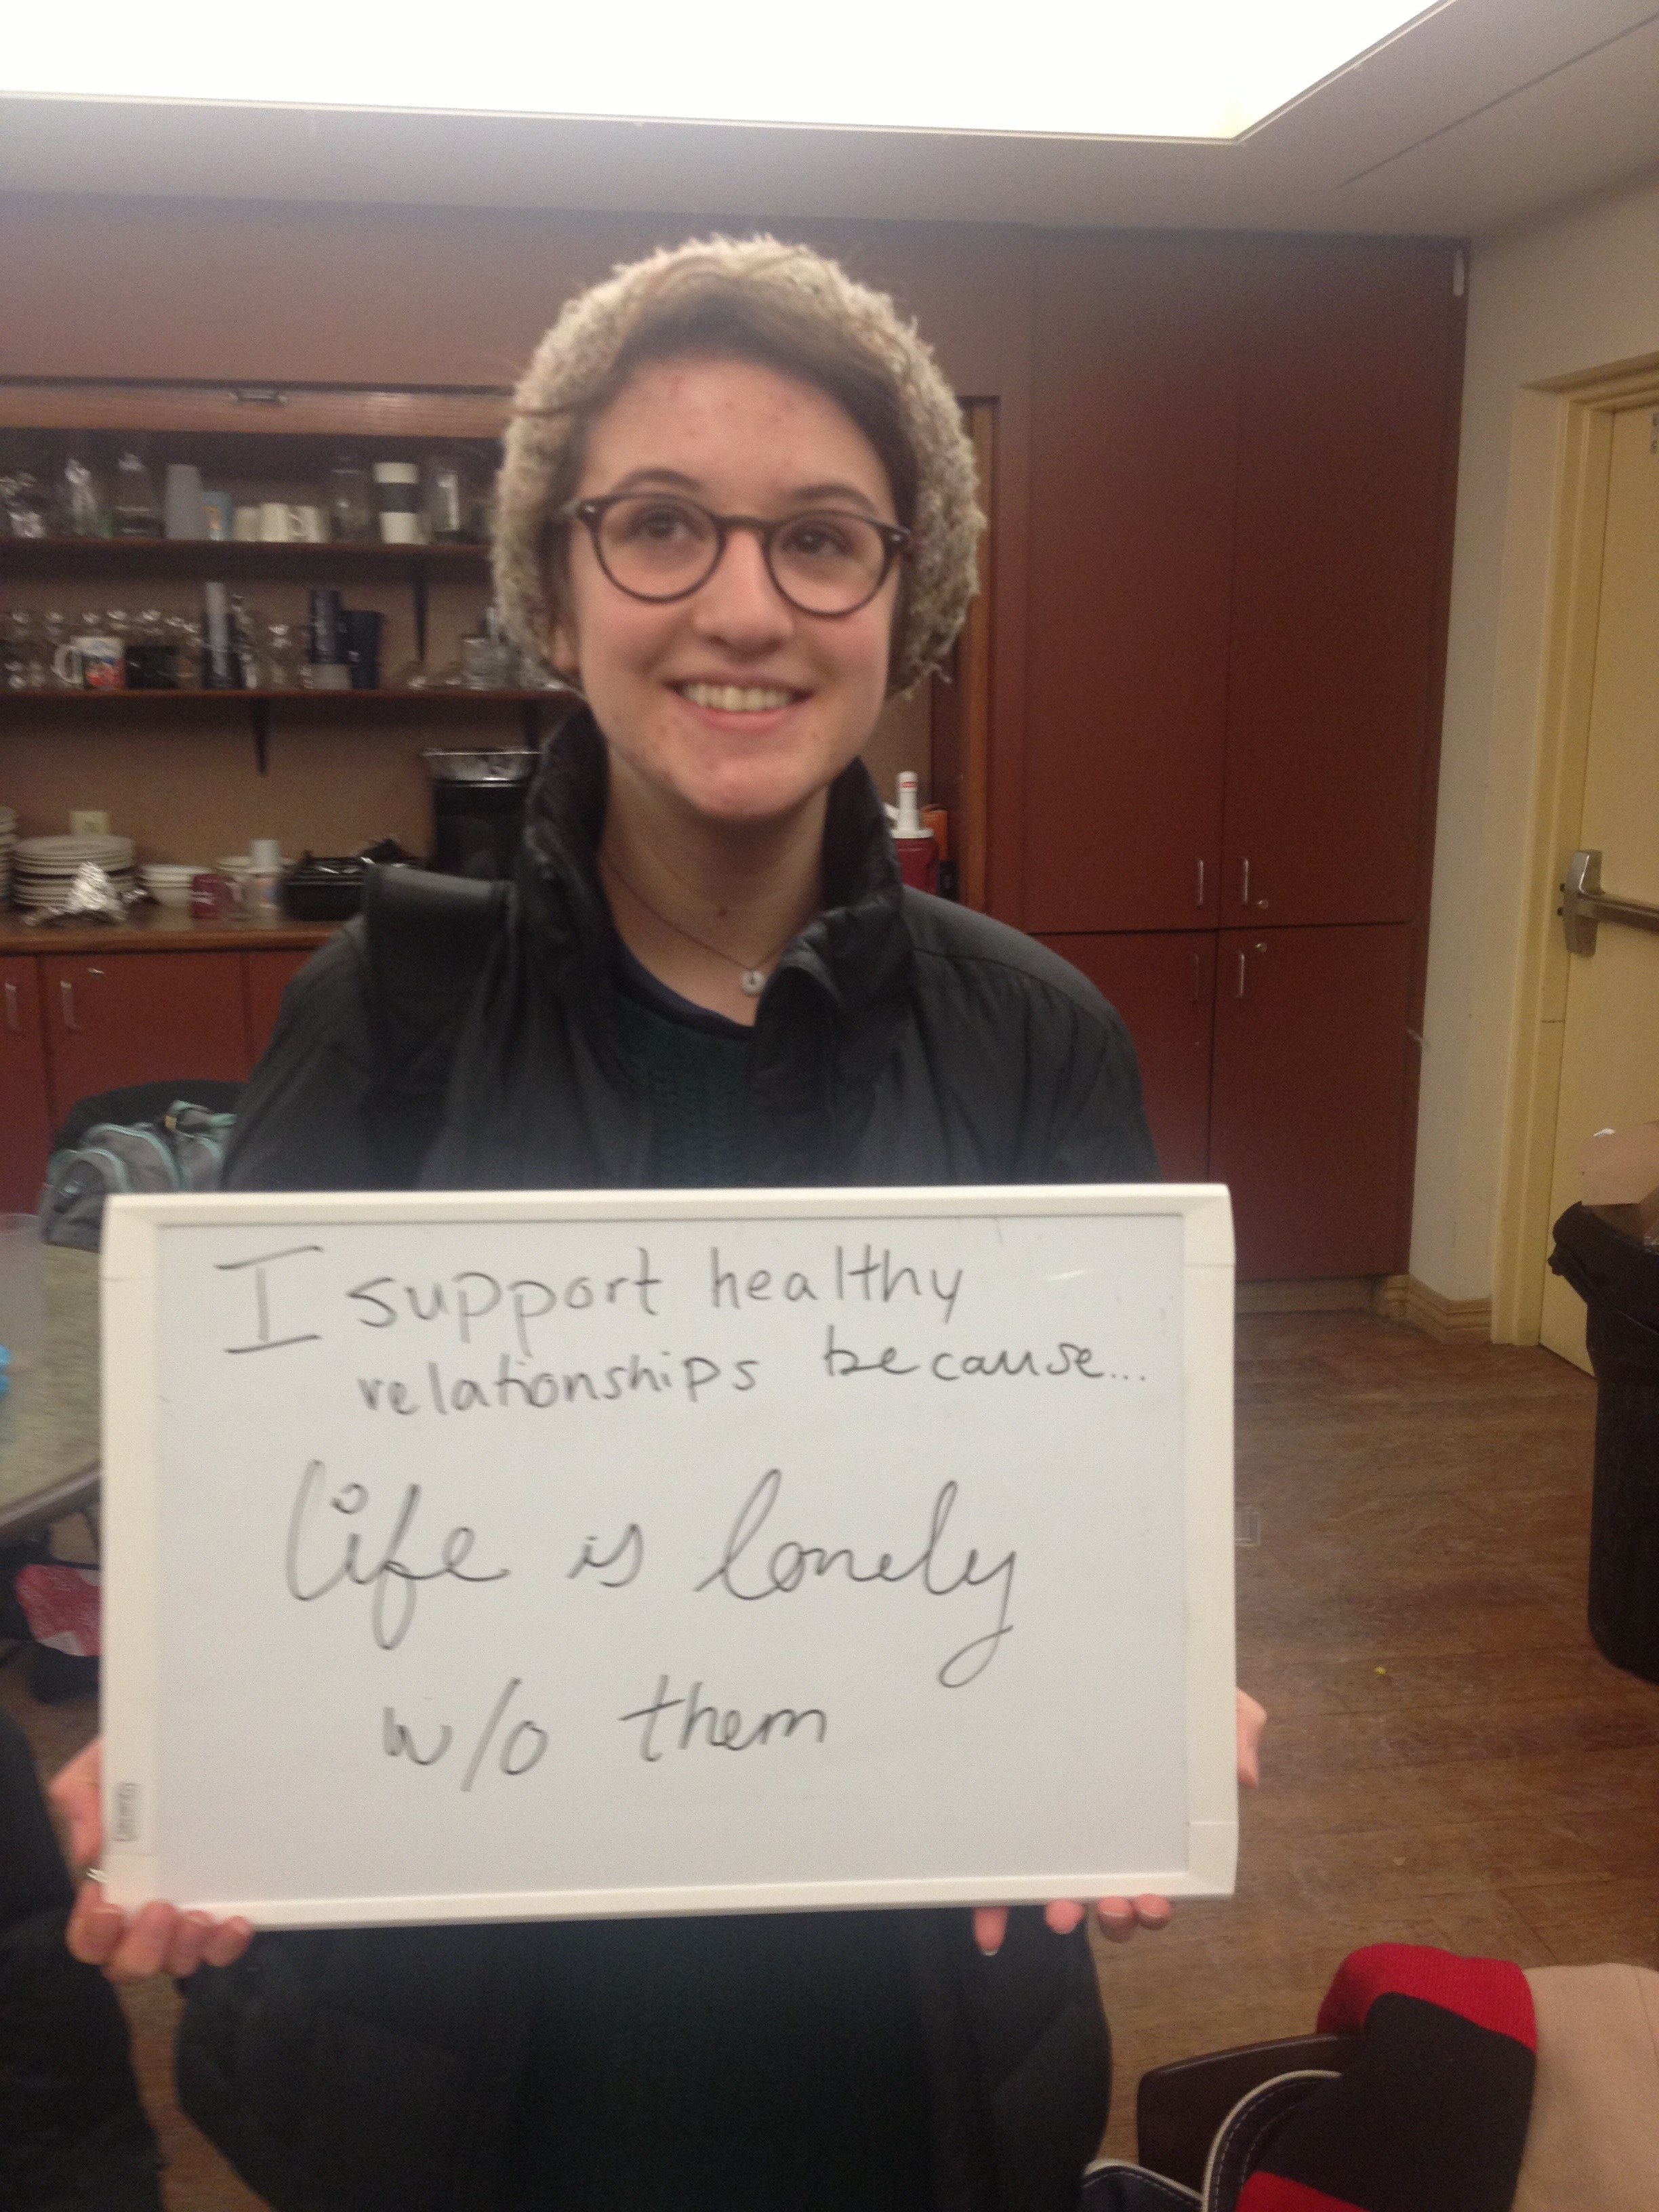 I support healthy
relationships because...
life is lonely
w/o them